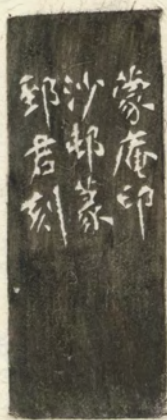 蒙庵印
沙邨篆
君刻